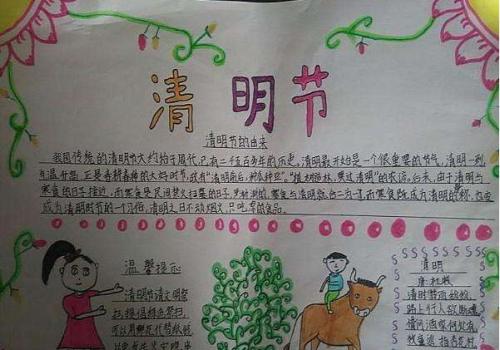 清明节
清明节的由来
我国传统的清明节大约始于周代，已有二千五百多年的历史，清明最开始是一个很重要的节气，清明一到
气温升高，正是春耕春种的大好时节，故有“清明前后，种瓜种豆”、“植树造林，莫过清明”的农谚。后来，由于清明与
寒食的日子接近，而寒食是民间禁火扫墓的日子，
成为清明时节的一个习俗，清明之日不动烟火，只吃凉的食品。
温馨提示
清明节请文明祭
可以用鲜花代替纸钱
清明
唐·杜牧
清明时节雨纷纷，
路上行人欲断魂。
借问酒家何处有，
牧童遥指杏花村。